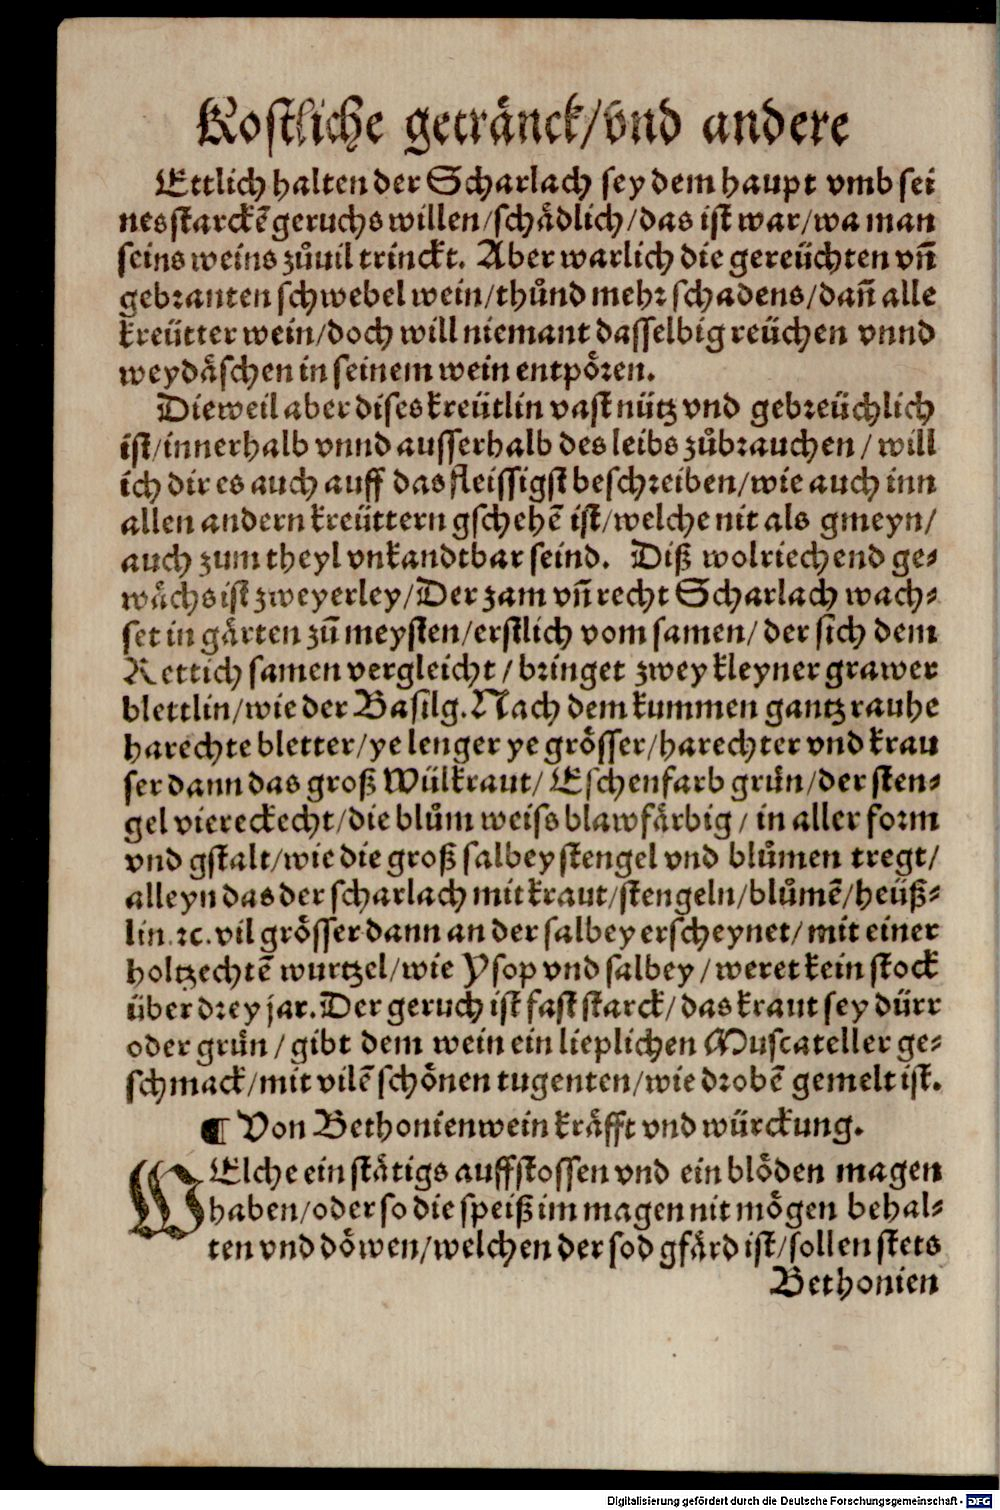 Kostliche getränck/vnd andere
Ettlich halten der Scharlach sey dem haupt vmb sei
nes starckē geruchs willen/schädlich/das ist war/wa man
seins weins zůuil trinckt. Aber warlich die gereüchten vñ
gebranten schwebel wein/thůnd mehr schadens/dañ alle
kreütter wein/doch will niemant dasselbig reüchen vnnd
weydäschen in seinem wein entpören.
Dieweil aber dises kreütlin vast nütz vnd gebreüchlich
ist/innerhalb vnnd ausserhalb des leibs zůbrauchen/ will
ich dir es auch auff das fleissigst beschreiben/wie auch inn
allen andern kreüttern gschehē ist/welche nit als gmeyn/
auch zum theyl vnkandtbar seind. Diß wolriechend ge-
wächs ist zweyerley/Der zam vñ recht Scharlach wach-
set in gärten zū meysten/erstlich vom samen/ der sich dem
Rettich samen vergleicht/bringet zwey kleyner grawer
blettlin/wie der Basilg. Nach dem kummen gantz rauhe
harechte bletter/ye lenger ye grösser/harechter vnd krau
ser dann das groß Wülkraut/ Eschenfarb grůn/der sten-
gel viereckecht/die blům weiss blawfärbig/ in aller form
vnd gstalt/wie die groß salbey stengel vnd blůmen tregt/
alleyn das der scharlach mit kraut/stengeln/blůmē/heüß-
lin.ꝛc. vil grösser dann an der salbey erscheynet/mit einer
holtzechtē wurtzel/wie Ysop vnd salbey/weret kein stock
über drey jar. Der geruch ist fast starck/das kraut sey dürr
oder grůn/gibt dem wein ein lieplichen Muscateller ge-
schmack/mit vilē schönen tugenten/wie drobē gemelt ist.
¶ Von Bethonienwein kräfft vnd würckung.
WElche ein stätigs auffstossen vnd ein blöden magen
haben/oder so die speiß im magen nit mögen behal-
ten vnd döwen/welchen der sod gfärd ist/sollen stets
Bethonien
Digitalisierung gefördert durch die Deutsche Forschungsgemeinschaft - DFG